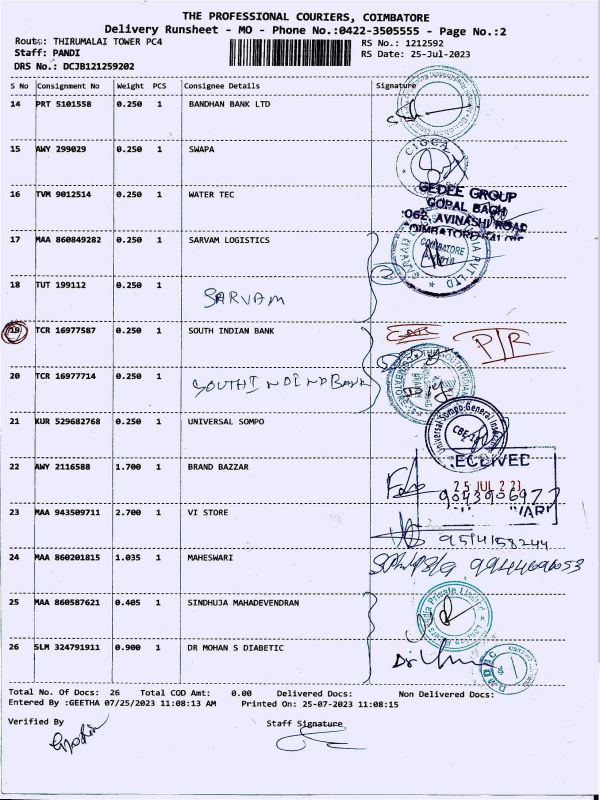 THE PROFESSIONAL COURIERS, COIMBATORE
Delivery Runsheet - MO - Phone No.:0422-3505555 - Page No.:2
Route: THIRUMALAI TOWER PC4
RS No.: 1212592
Staff: PANDI
RS Date: 25-Jul-2023
DRS No.: DCJB121259202
S No Consignment No Weight PCS Consignee Details Signature
14 PRT 5101558 0.250 1 BANDHAN BANK LTD
15 AWY 299029 0.250 1 SWAPA
16 TVM 9012514 0.250 1 WATER TEC
GEDEE GROUP
GOPAL BAGH
AVINASHI ROAD
17 MAA 860849282 0.250 1 SARVAM LOGISTICS
COIMBATORE
18 TUT 199112 0.250 1
SARVAM
19 TCR 16977587 0.250 1 SOUTH INDIAN BANK
P/R
20 TCR 16977714 0.250 1
21 KUR 529682768 0.250 1 UNIVERSAL SOMPO
Universal Sompo General
CBE
22 AWY 2116588 1.700 1 BRAND BAZZAR
ECEIVED
25 JUL 2 23
9043906977
23 MAA 943509711 2.700 1 VI STORE
9514158244
24 MAA 860201815 1.035 1 MAHESWARI
25 MAA 860587621 0.405 1 SINDHUJA MAHADEVENDRAN
26 SLM 324791911 0.900 1 DR MOHAN S DIABETIC
Total No. Of Docs: 26 Total COD Amt: 0.00 Delivered Docs: Non Delivered Docs:
Entered By :GEETHA 07/25/2023 11:08:13 AM Printed On: 25-07-2023 11:08:15
Verified By
Staff Signature